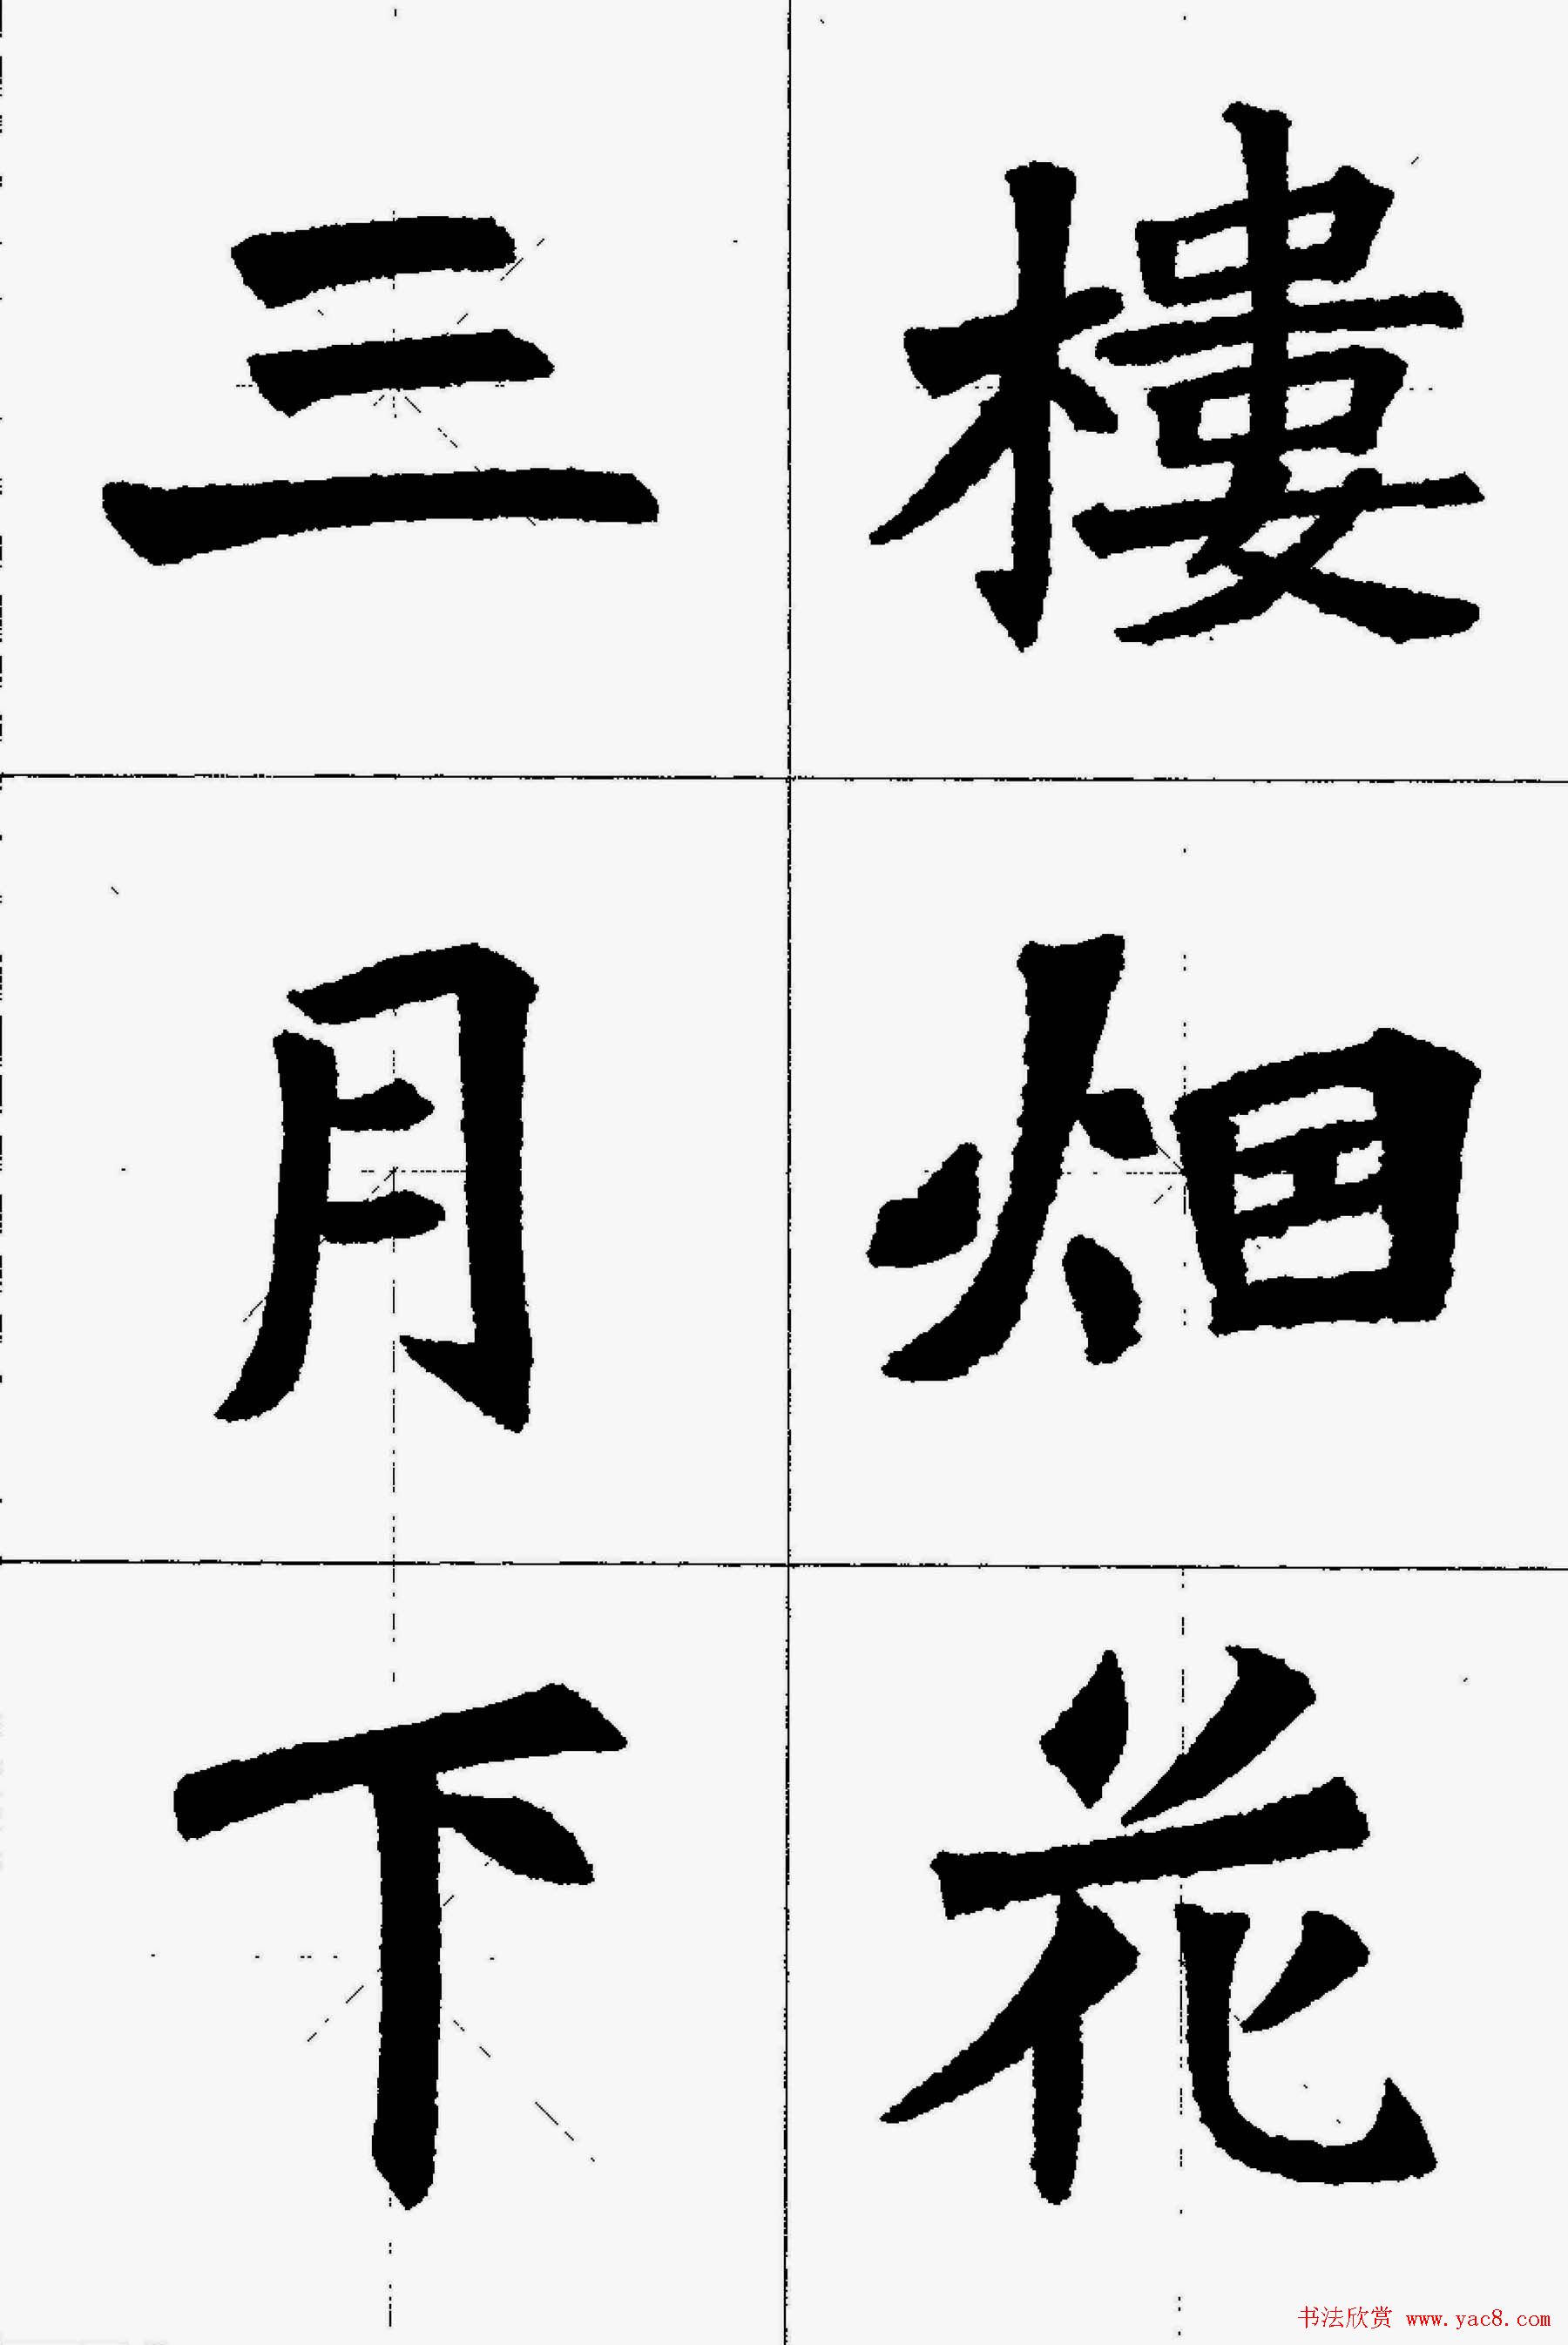 樓烟花
三月下
书法欣赏 www.yac8.com